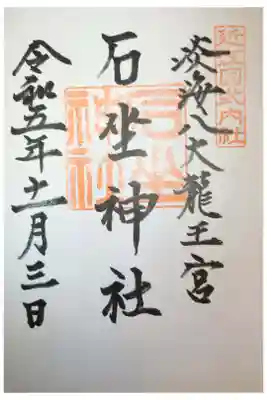 近江国式内社
淡海八大龍王宮
石坐神社
令和五年十一月三日